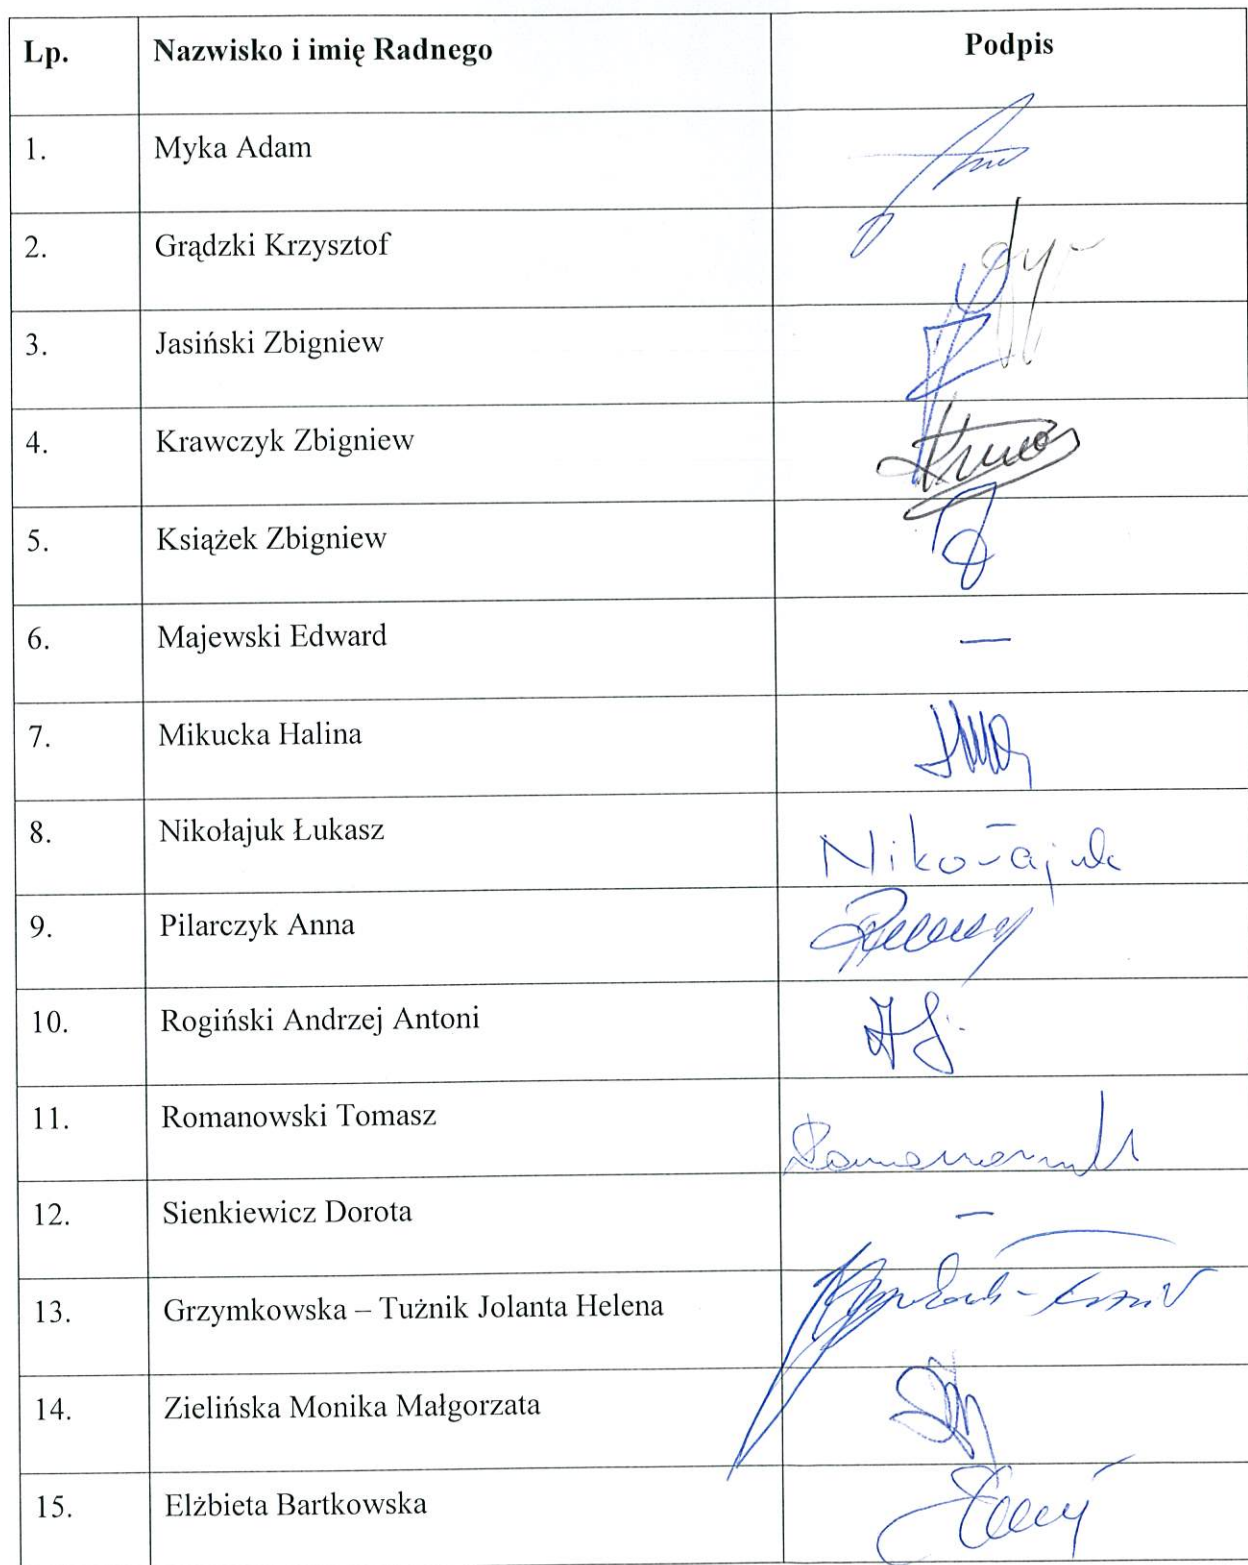 Lp. Nazwisko i imię Radnego Podpis
1. Myka Adam
2. Grądzki Krzysztof
3. Jasiński Zbigniew
4. Krawczyk Zbigniew
5. Książek Zbigniew
6. Majewski Edward —
7. Mikucka Halina
8. Nikołajuk Łukasz Nikołajuk
9. Pilarczyk Anna
10. Rogiński Andrzej Antoni
11. Romanowski Tomasz
12. Sienkiewicz Dorota —
13. Grzymkowska – Tużnik Jolanta Helena
14. Zielińska Monika Małgorzata
15. Elżbieta Bartkowska